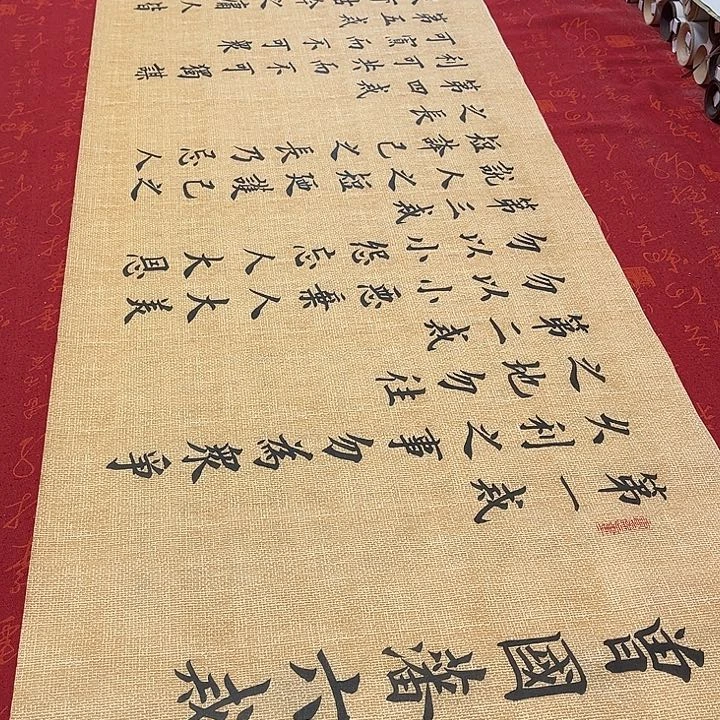 曾國藩六戒
第一戒
久利之事勿為眾爭
之地勿往
第二戒
勿以小惡棄人大美
勿以小怨忘人大恩
第三戒
說人之短廼護己之
短誇己之長乃忌人
之長
第四戒
利可共而不可獨謀
可寡而不可眾
第五戒
下古今之庸人皆